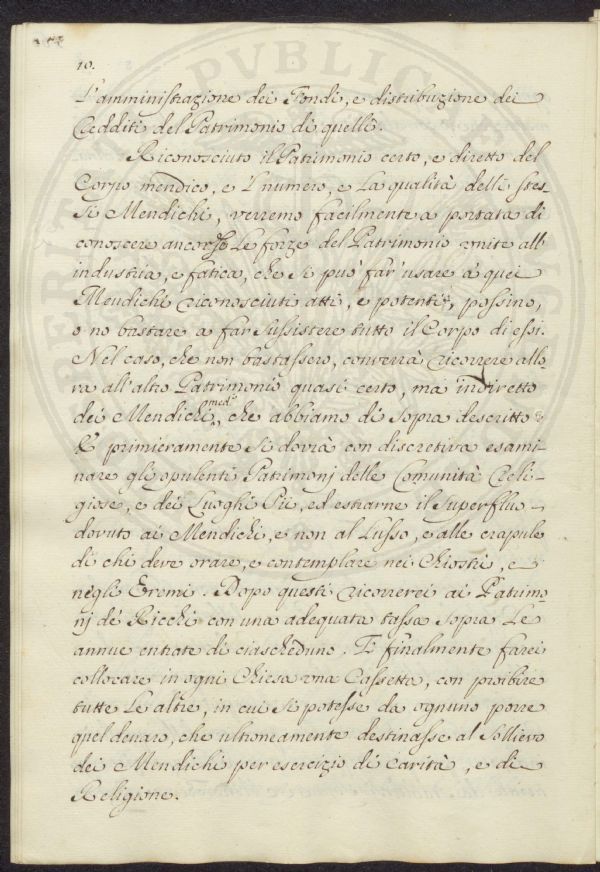 10.
L'amministrazione dei Fondi, e distribuzione dei
Redditi del Patrimonio di quelli.
Riconosciuto il Patrimonio certo, e diretto del
Corpo mendico, e 'l numero, e La qualità delli stes-
si Mendichi, verremo facilmente a portata di
conoscere ancora se Le forze del Patrimonio unite all'
industria, e fatica, che si può far' usare a quei
Mendichi riconosciuti atti, e potenti, possino,
o no bastare a far sussistere tutto il Corpo di essi.
Nel caso, che non bastassero, converrà ricorrere allo-
ra all'altro Patrimonio quasi certo, mà indiretto
dei Mendichi med.i, che abbiamo di sopra descritto.
E primieramente si dovrà con discretiva esami-
nare gli opulenti Patrimonj delle Comunità Reli-
giose, e dei Luoghi Pii, ed estrarne il superfluo
dovuto ai Mendichi, e non al Lusso, e alle crapule
di chi deve orare, e contemplare nei Chiostri, e
negli Eremi. Dopo questi ricorrerei ai Patrimo-
nj de' Ricchi con una adequata tassa sopra Le
annue entrate di ciascheduno. E finalmente farei
collocare in ogni Chiesa una Cassetta, con proibire
tutte Le altre, in cui si potesse da ognuno porre
quel denaro, che ultroneamente destinasse al sollievo
dei Mendichi per esercizio di Carità, e di
Religione.